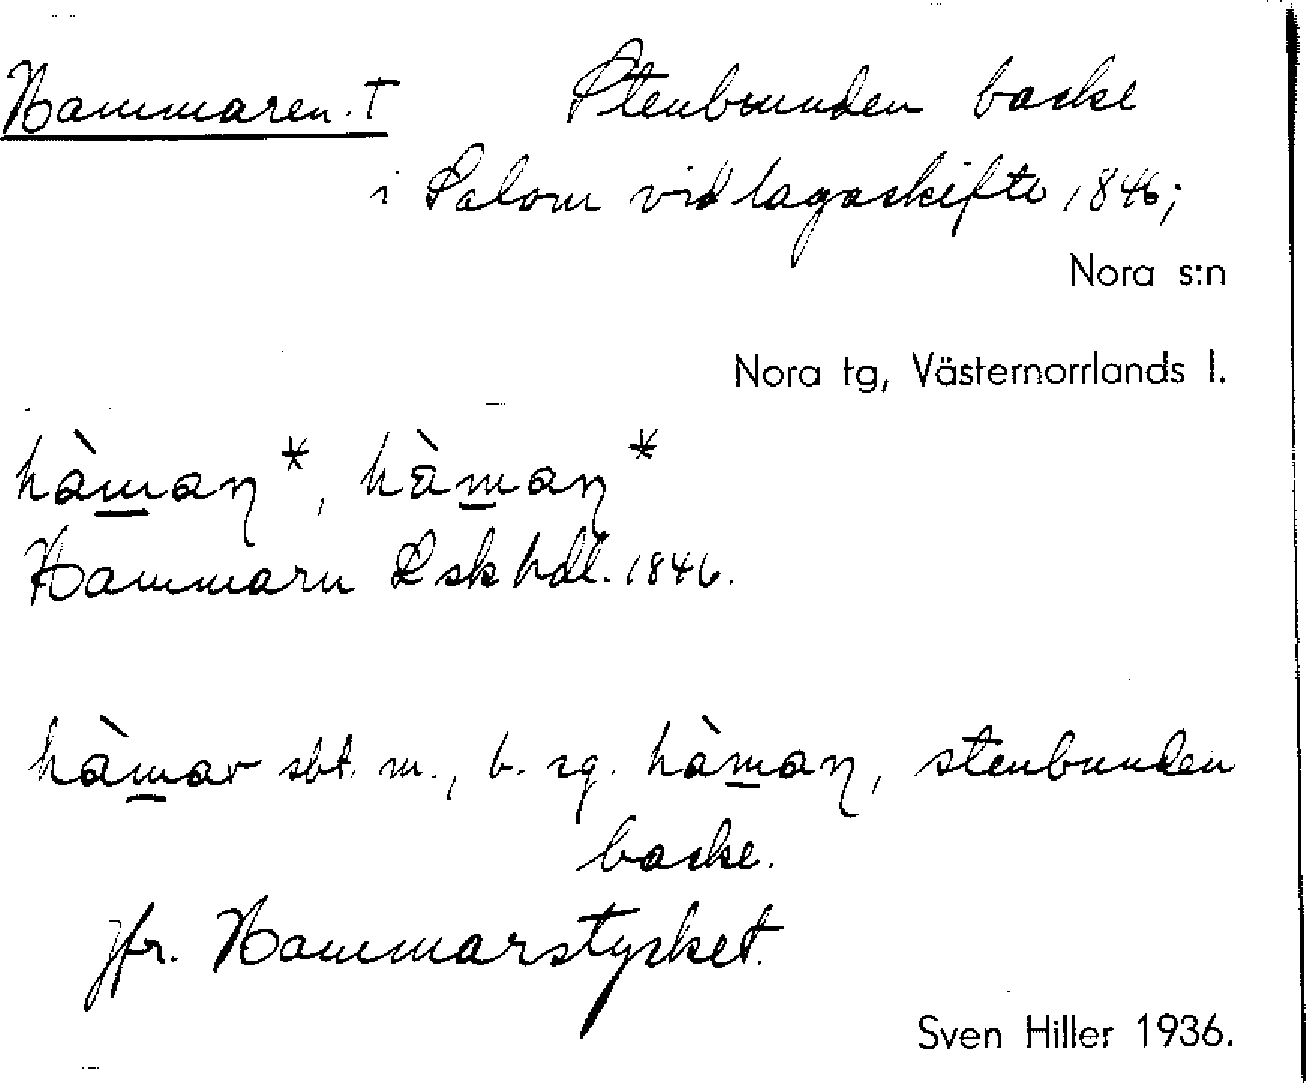 Hammaren. † Stenbunden backe
i Salom vid lagaskifte 1846;
Nora s:n
Nora tg, Västernorrlands l.
hàmaɳ*, hàmaɳ*
Hammarn Lsk hdl. 1846.
hàmar sbt. m., b. sg. hàmaɳ, stenbunden
backe.
Jfr. Hammarstycket.
Sven Hiller 1936.